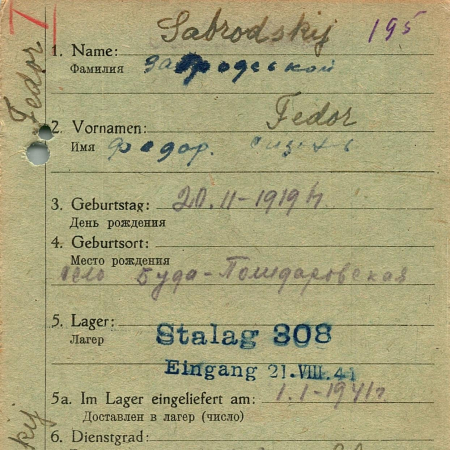 Sabrodskij 195
1. Name:
Фамилия Забродской
2. Vornamen: Fedor
Имя Федор.
3. Geburtstag: 20.11-1919 г.
День рождения
4. Geburtsort:
Место рождения
село Буда-
5. Lager: Stalag 308
Лагер Eingang 21. VIII. 41
5a. Im Lager eingeliefert am: 1.1-1941 г.
Доставлен в лагер (число)
6. Dienstgrad:
Fedor